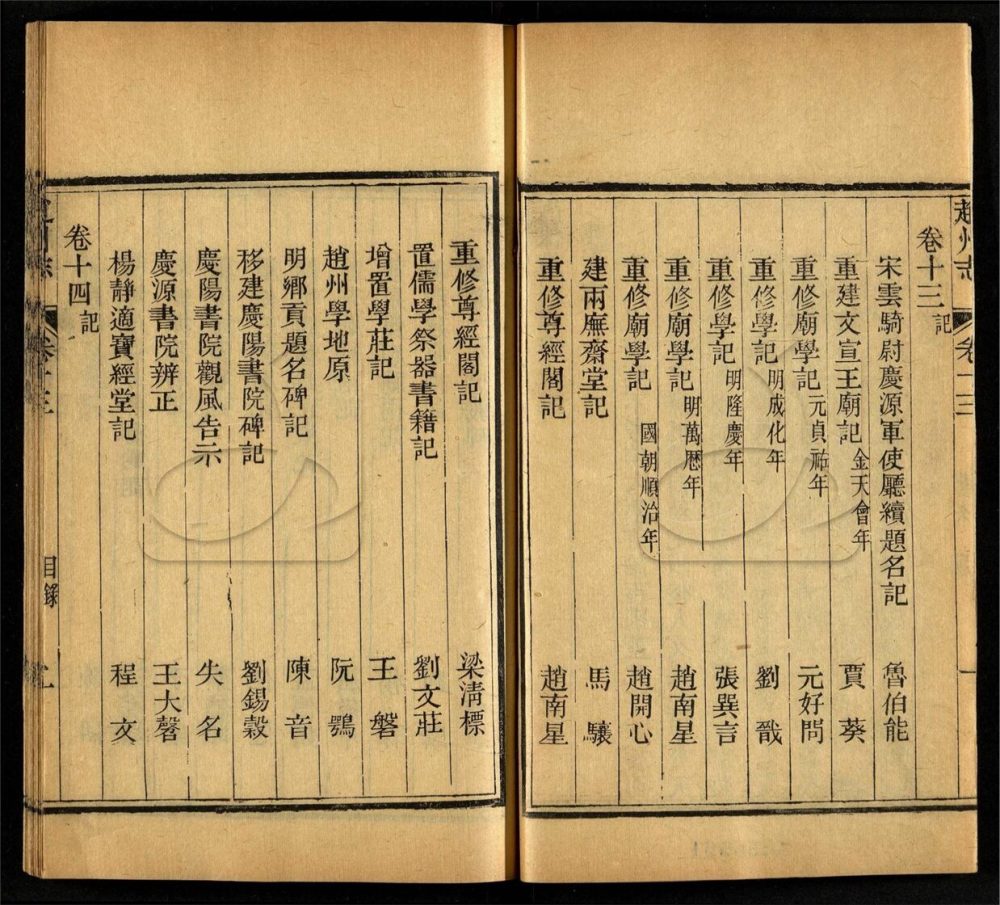 趙州志
卷十三
一
卷十三 記
宋雲騎尉慶源軍使廳續題名記 魯伯能
重建文宣王廟記 金天會年 賈葵
重修廟學記 元貞祐年 元好問
重修學記 明成化年 劉戩
重修學記 明隆慶年 張巽言
重修廟學記 明萬歷年 趙南星
重修廟學記 國朝順治年 趙開心
建兩廡齋堂記 馬驤
重修尊經閣記 趙南星
重修尊經閣記 梁清標
置儒學祭器書籍記 劉文莊
增置學莊記 王磐
趙州學地原 阮鶚
明鄉貢題名碑記 陳音
移建慶陽書院碑記 劉錫穀
慶陽書院觀風告示 失名
慶源書院辨正 王大磬
楊靜適寶經堂記 程文
卷十四 記
卷十三
目錄